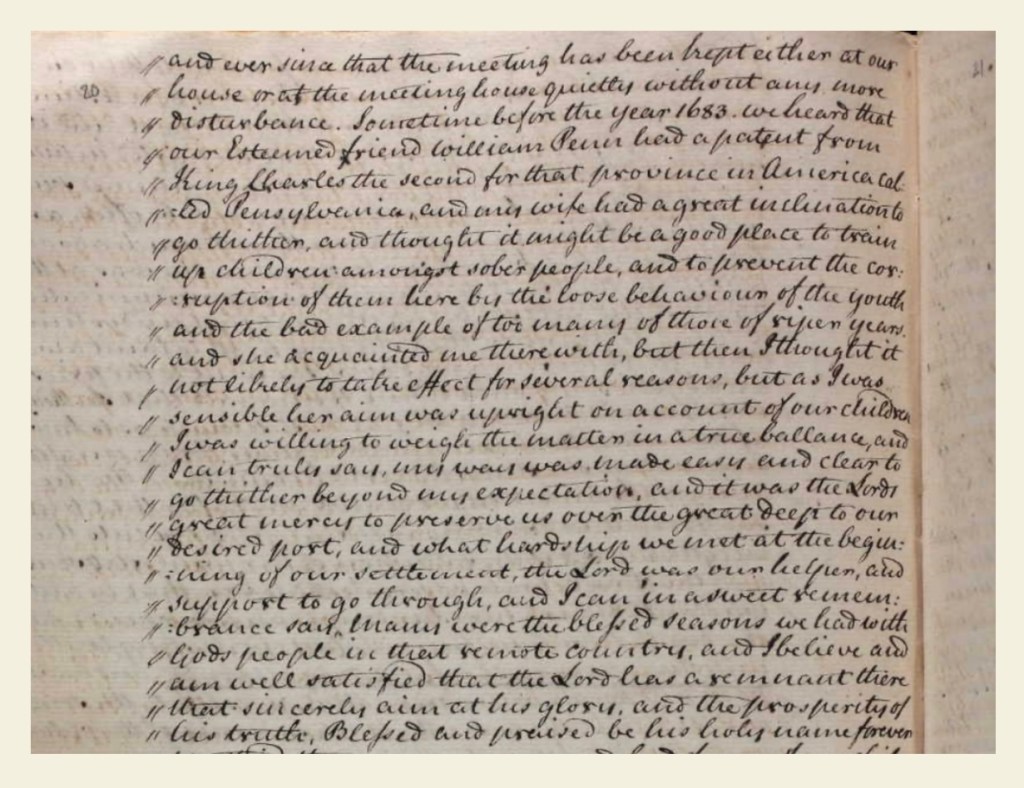 20
〃 and ever since that the meeting has been kept either at our
〃 house or at the meeting house quietly without any more
〃 disturbance. Sometime before the year 1683. we heard that
〃 our Esteemed friend William Penn had a patent from
〃 King Charles the second for that province in America cal:
〃 :led Pensylvania, and my wife had a great inclination to
〃 go thither, and thought it might be a good place to train
〃 up children amongst sober people, and to prevent the cor:
〃 :ruption of them here by the loose behaviour of the youth
〃 and the bad example of too many of those of riper years.
〃 and she acquainted me therewith, but then I thought it
〃 not likely to take effect for several reasons, but as I was
〃 sensible her aim was upright on account of our children
〃 I was willing to weigh the matter in a true ballance, and
〃 I can truly say, my way was made easy and clear to
〃 go thither beyond my expectation, and it was the Lords
〃 great mercy to preserve us over the great deep to our
〃 desired port, and what hardship we met at the begin:
〃 :ning of our settlement, the Lord was our helper, and
〃 support to go through, and I can in a sweet remem:
〃 :brance say, Many were the blessed seasons we had with
〃 Gods people in that remote country, and I believe and
〃 am well satisfied that the Lord has a remnant there
〃 that sincerely aim at his glory, and the prosperity of
〃 his truth, Blessed and praised be his holy name forever